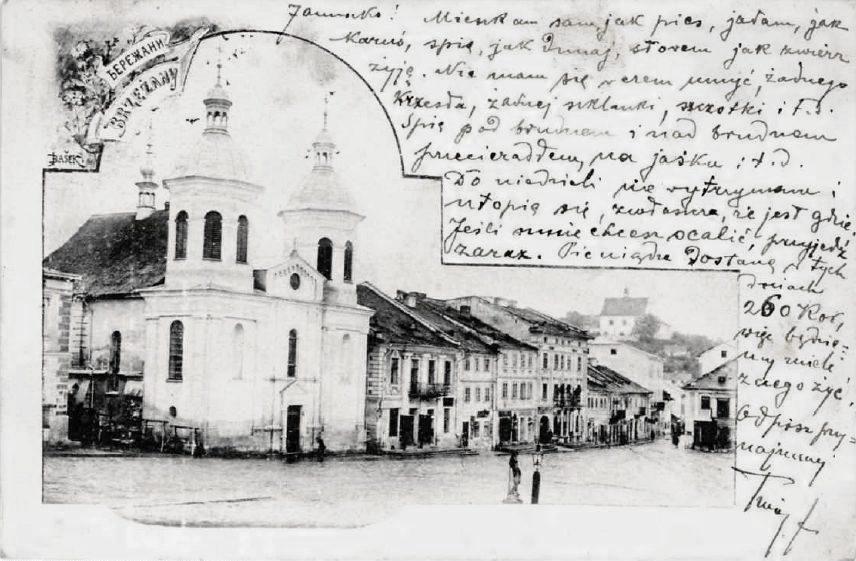 БЕРЕЖАНИ
BRZEŻANY
RYNEK
Janusko! Mieszkam sam jak pies, jadam, jak
spię, jak Dunaj, słowem jak zwierz
żyję. Nie mam się w czem umyć, żadnego
krzesła, żadnej szklanki, szczotki i t.d.
Spię pod brudnem i nad brudnem
prześcieradłem, na jaśku i t.d.
Do niedzieli nie wytrzymam i
utopię się, zwłaszcza, że jest gdzie.
Jeśli mnie chcesz ocalić, przyjedź
zaraz. Pieniądze dostanę w tych
dniach
260 Kor,
więc będzie-
my mieli
z czego żyć.
Odpisz przy-
najmniej
Twój